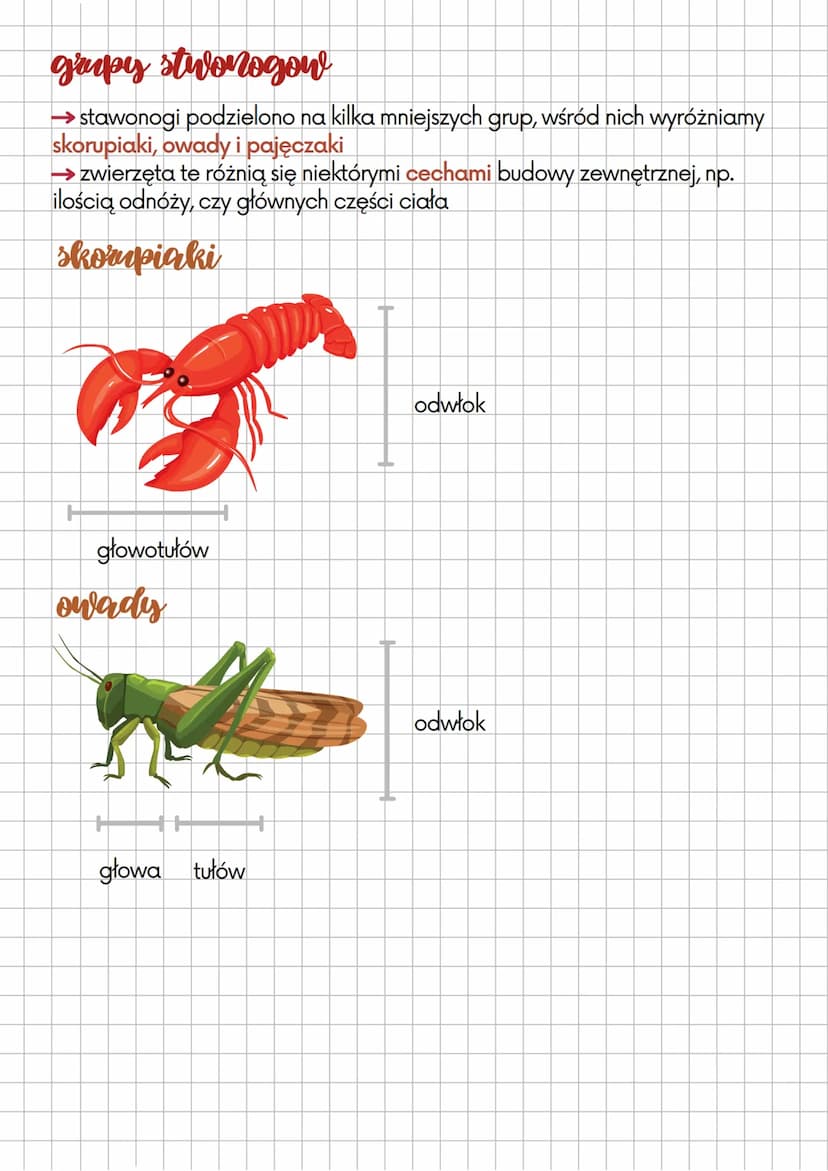 grupy stwonogow
→ stawonogi podzielono na kilka mniejszych grup, wśród nich wyróżniamy
skorupiaki, owady i pajęczaki
→ zwierzęta te różnią się niektórymi cechami budowy zewnętrznej, np.
ilością odnóży, czy głównych części ciała
skorupiaki
odwłok
głowotułów
owady
odwłok
głowa tułów